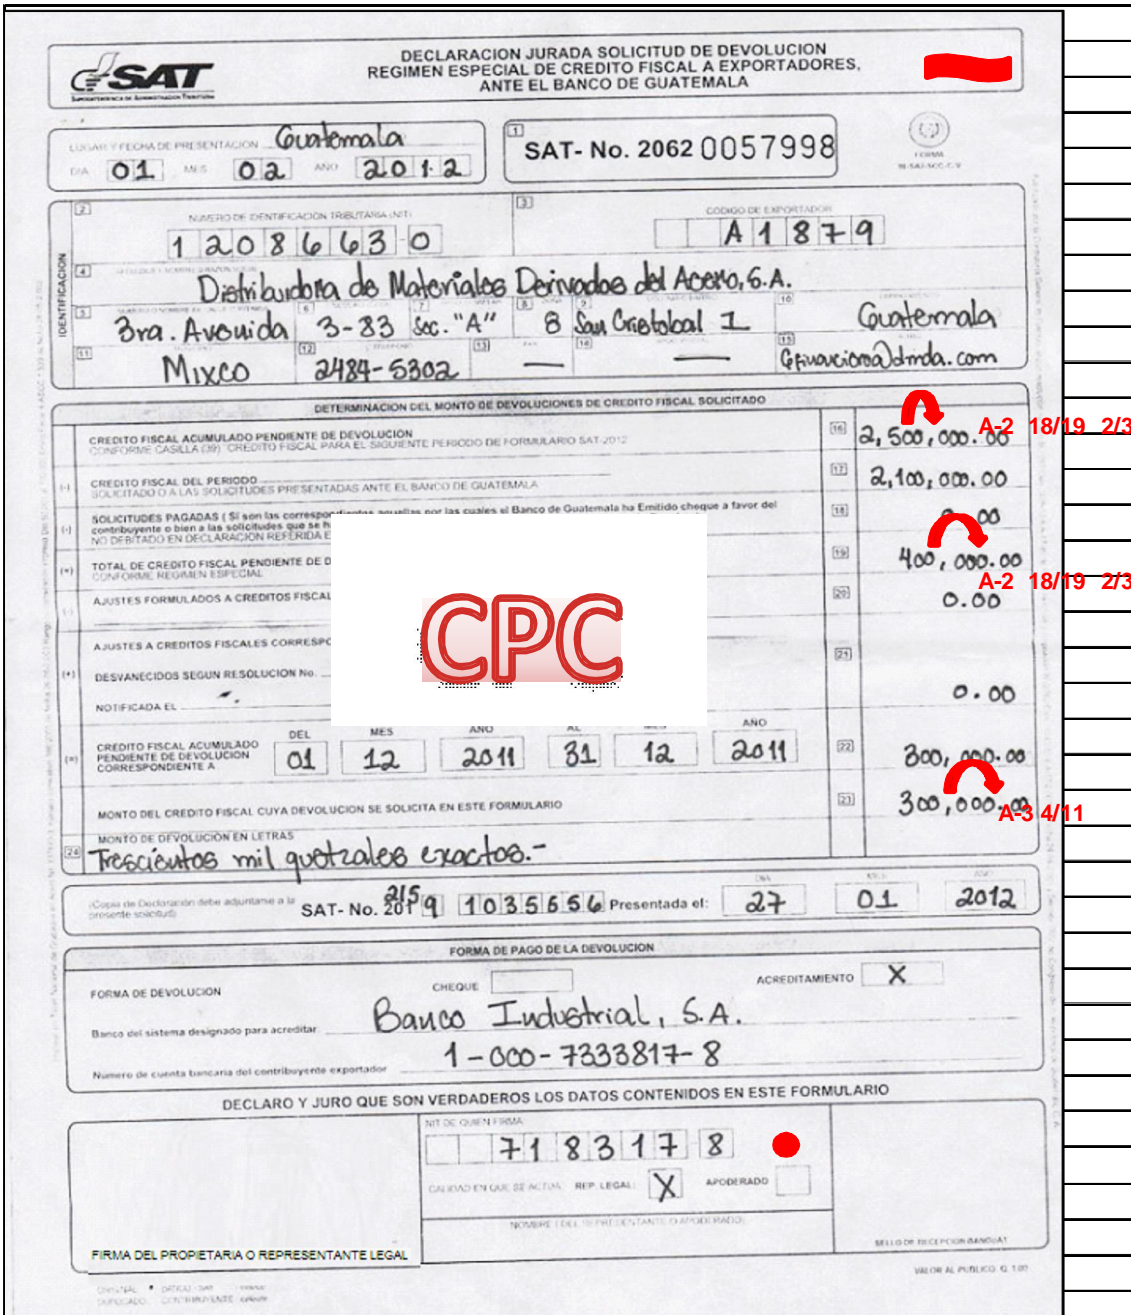 SAT
SUPERINTENDENCIA DE ADMINISTRACION TRIBUTARIA
DECLARACION JURADA SOLICITUD DE DEVOLUCION
REGIMEN ESPECIAL DE CREDITO FISCAL A EXPORTADORES,
ANTE EL BANCO DE GUATEMALA
LUGAR Y FECHA DE PRESENTACION Guatemala
DIA 01 MES 02 AÑO 2012
1 SAT- No. 2062 0057998
FORMA
IDENTIFICACION
2 NUMERO DE IDENTIFICACION TRIBUTARIA (NIT)
1208663 0
3 CODIGO DE EXPORTADOR
A1879
4 Distribuidora de Materiales Derivados del Acero, S.A.
5 3ra. Avenida 6 3-83 7 Sec. "A" 8 8 9 San Cristobal 1 10 Guatemala
11 Mixco 12 2484-5302 13 — 14 — 15 Gfinanciera@dmda.com
DETERMINACION DEL MONTO DE DEVOLUCIONES DE CREDITO FISCAL SOLICITADO
CREDITO FISCAL ACUMULADO PENDIENTE DE DEVOLUCION 16 2,500,000.00 A-2 18/19 2/3
CONFORME CASILLA (39) CREDITO FISCAL PARA EL SIGUIENTE PERIODO DE FORMULARIO SAT-2012
(-) CREDITO FISCAL DEL PERIODO 17 2,100,000.00
SOLICITADO O A LAS SOLICITUDES PRESENTADAS ANTE EL BANCO DE GUATEMALA
(-) SOLICITUDES PAGADAS ( Si son las correspondientes aquellas por las cuales el Banco de Guatemala ha Emitido cheque a favor del 18 0.00
contribuyente o bien a las solicitudes que se h
NO DEBITADO EN DECLARACION REFERIDA E
(=) TOTAL DE CREDITO FISCAL PENDIENTE DE D 19 400,000.00
CONFORME REGIMEN ESPECIAL A-2 18/19 2/3
(-) AJUSTES FORMULADOS A CREDITOS FISCAL 20 0.00
CPC
AJUSTES A CREDITOS FISCALES CORRESPO 21
(+) DESVANECIDOS SEGUN RESOLUCION No. 0.00
NOTIFICADA EL
DEL MES AÑO AL MES AÑO
(=) CREDITO FISCAL ACUMULADO
PENDIENTE DE DEVOLUCION
CORRESPONDIENTE A 01 12 2011 31 12 2011 22 300,000.00
MONTO DEL CREDITO FISCAL CUYA DEVOLUCION SE SOLICITA EN ESTE FORMULARIO 23 300,000.00 A-3 4/11
24 MONTO DE DEVOLUCION EN LETRAS
Trescientos mil quetzales exactos.-
(Copia de Declaración debe adjuntarse a la
presente solicitud) SAT- No. 201 215 9 1035656 Presentada el: DIA 27 MES 01 AÑO 2012
FORMA DE PAGO DE LA DEVOLUCION
FORMA DE DEVOLUCION CHEQUE ACREDITAMIENTO X
Banco del sistema designado para acreditar Banco Industrial, S.A.
Número de cuenta bancaria del contribuyente exportador 1-000-7333817-8
DECLARO Y JURO QUE SON VERDADEROS LOS DATOS CONTENIDOS EN ESTE FORMULARIO
NIT DE QUIEN FIRMA
718317 8
CALIDAD EN QUE SE ACTUA: REP. LEGAL: X APODERADO
NOMBRE (DEL REPRESENTANTE O APODERADO)
FIRMA DEL PROPIETARIA O REPRESENTANTE LEGAL
SELLO DE RECEPCION BANGUAT
VALOR AL PUBLICO Q. 1.00
ORIGINAL
DUPLICADO: CONTRIBUYENTE